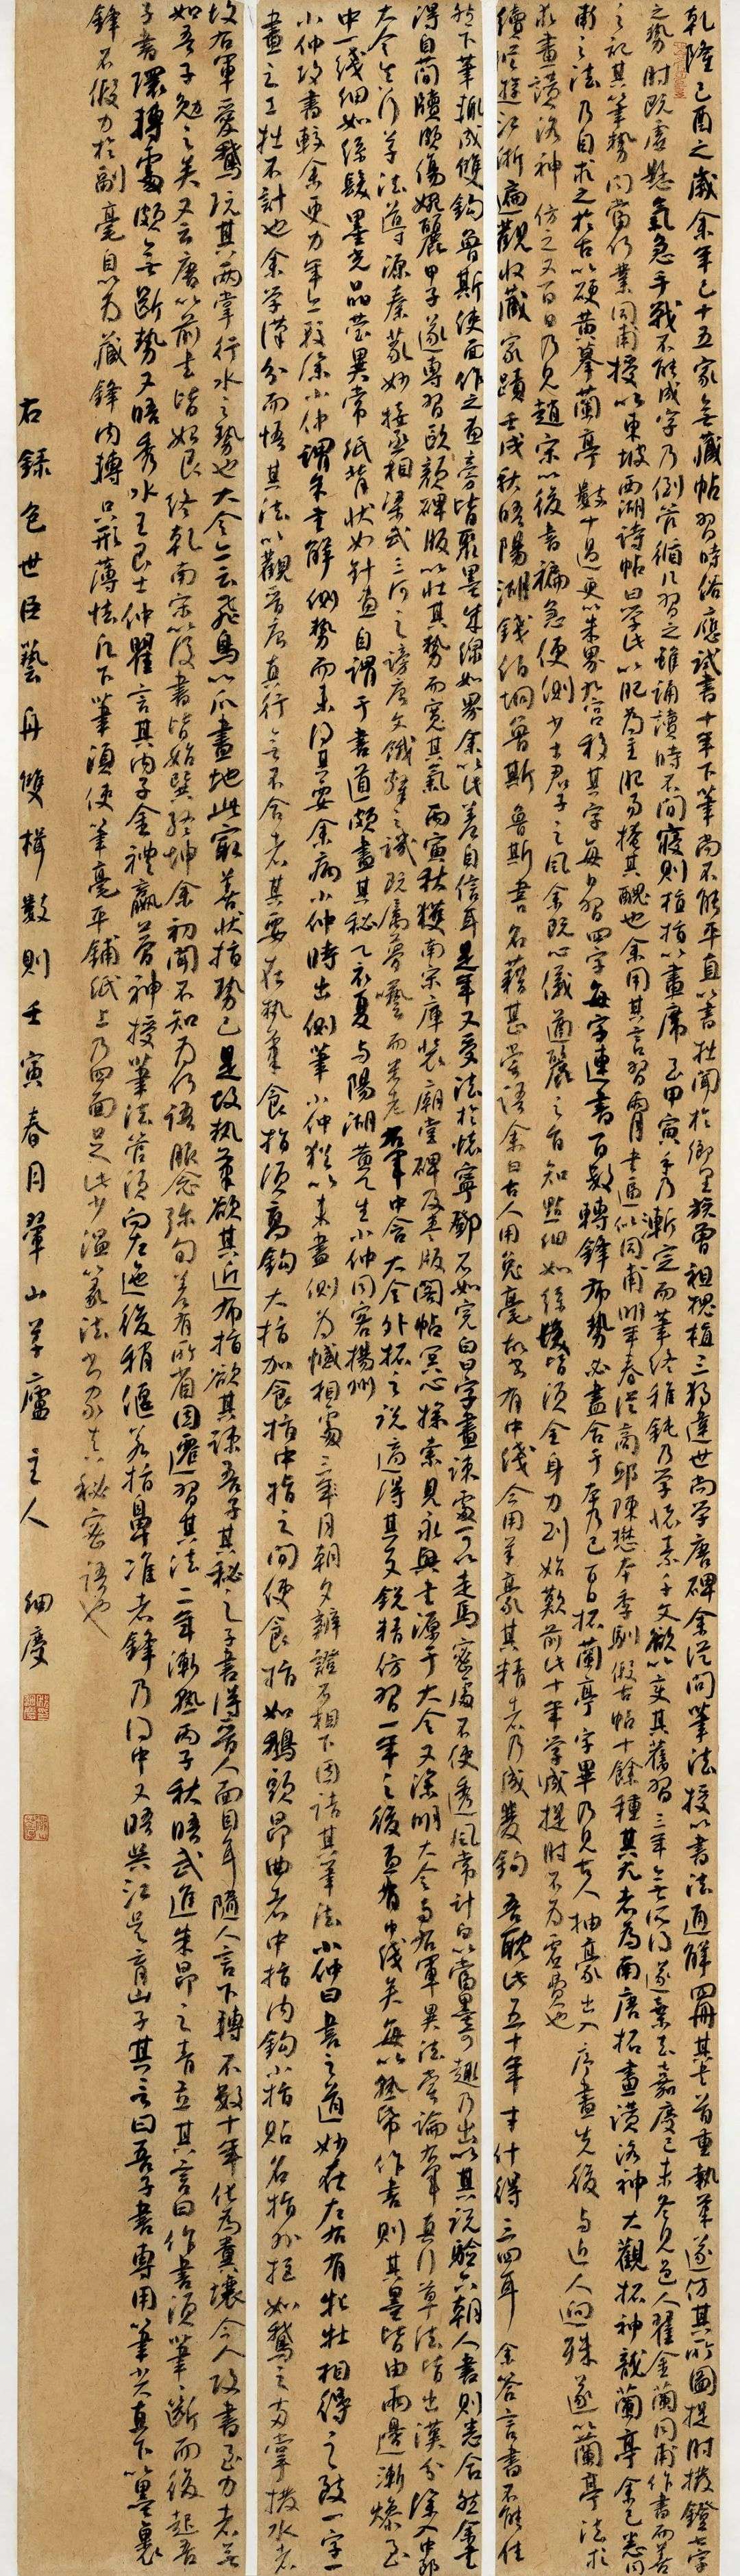 乾隆己酉之歲余年已十五家無藏帖習時俗應試書十年下筆尚不能平直以書拙聞於鄉里族曾祖槐植三獨違世尚學唐碑余從問筆法授以書法通解四冊其書首重執筆遂仿其所圖提肘撥鐙七字
之勢肘既虛懸氣急手戰不能成字乃倒管循几習之雖誦讀時不間寢則植指以畫席至甲寅手乃漸定而筆終稚鈍乃學懷素千文欲以變其舊習三年無所得遂棄去嘉慶己未冬見邑人翟金蘭同甫作書而善
之記其筆勢問當何業同甫授以東坡西湖詩帖曰學此以肥為主肥易掩其醜也余用其言習兩月書逼似同甫明年春從商邱陳懋本季馴假古帖十餘種其尤者為南唐拓畫讚洛神大觀拓神龍蘭亭余已悉同
甫之法乃自求之於古以硬黃摹蘭亭數十過更以朱界九宮移其字每日習四字每字連書百數轉鋒布勢必盡合於本乃已百日拓蘭亭字畢乃見古人抽豪出入序畫先後與近人迥殊遂以蘭亭法求
畫讚洛神仿之又百日乃見趙宋以後書褊急便側少士君子之風余既心儀遒麗之旨知點細如絲髮皆須全身力到始歎前此十年學成提肘不為虛費也
續從遊江浙遍觀收藏家蹟壬戌秋晤陽湖錢伯坰魯斯魯斯書名藉甚嘗語余曰古人用兔毫故書有中綫今用羊豪其精者乃成雙鉤吾耽此五十年才什得三四耳余答言書不能佳
然下筆輒成雙鉤魯斯使面作之畫旁皆聚墨成綫如界余以此差自信耳是年又受法於懷寧鄧石如完白曰字畫疎處可以走馬密處不使透風常計白以當黑奇趣乃出以其說驗六朝人書則悉合然余書
得自簡牘頗傷婉麗甲子遂專習歐顏碑版以壯其勢而寬其氣丙寅秋獲南宋庫裝廟堂碑及棗版閣帖冥心探索見永興書源于大令又深明大令與右軍異法嘗論右軍真行草法皆出漢分深入中郎
大令真行草法導源秦篆妙接丞相梁武三河之謗唐文餓隸之譏既屬夢囈而米老右軍中含大令外拓之說適得其反銳精仿習一年之後畫有中綫矣每以熟帋作書則其墨皆由兩邊漸燥至
中一綫細如絲髮墨光晶瑩異常紙背狀如針畫自謂于書道頗盡其秘乙亥夏與陽湖黃乙生小仲同客揚州
小仲攻書較余更力年亦較深小仲謂余書解側勢而未得其要余病小仲時出側筆小仲猶以未盡側為憾相處三年月朝夕辯證不相下因詰其筆法小仲曰書之道妙在左右有牝牡相得之致一字一
畫之工拙不計也余學漢分而悟其法以觀晉唐真行無不合者其要在執筆食指須高鉤大指加食指中指之間使食指如鵝頭昂曲者中指內鉤小指貼名指外拒如鵝之兩掌撥水者
故右軍愛鵝玩其兩掌行水之勢也大令亦云飛鳥以爪畫地此最善狀指勢已是故執筆欲其近布指欲其疎吾子其秘之子書得晉人面目耳隨人言下轉不數十年化為糞壤今人攻書至力者無
如吾子勉之矣又云唐以前書皆始艮終乾南宋以後書皆始巽終坤余初聞不知為何語服念彌旬差有所省因遷習其法二年漸熟丙子秋晤武進朱昂之青立其言曰作書須筆筆斷而後起吾
子書環轉處頗無斷勢又晤秀水王良士仲瞿言其內子金禮嬴夢神授筆法管須向左迤後稍偃若指鼻准者鋒乃得中又晤吳江吳育山子其言曰吾子書專用筆尖直下以墨裹
鋒不假力於副毫自以為藏鋒內轉只形薄怯凡下筆須使筆毫平鋪紙上乃四面足此少溫篆法書家真秘密語也
右錄包世臣藝舟雙楫數則壬寅春月翠山草廬主人細慶